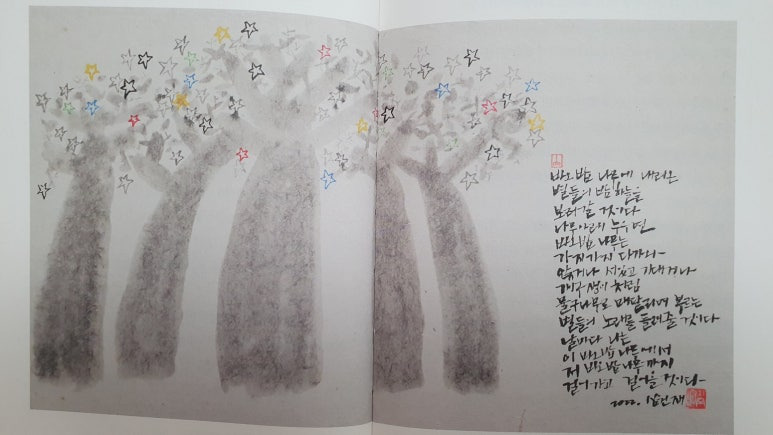 바오밥 나무에 내려온
별들의 밤하늘을
보러갈 것이다
나무아래 누우면
바오밥 나무는
가지가지 다가와
앉거나 서있고 기대거나
개구쟁이 처럼
물구나무로 매달리며 부르는
별들의 노래를 들려줄 것이다
날마다 나는
이 바오밥 나무에서
저 바오밥 나무까지
걸어가고 것이다
2022.